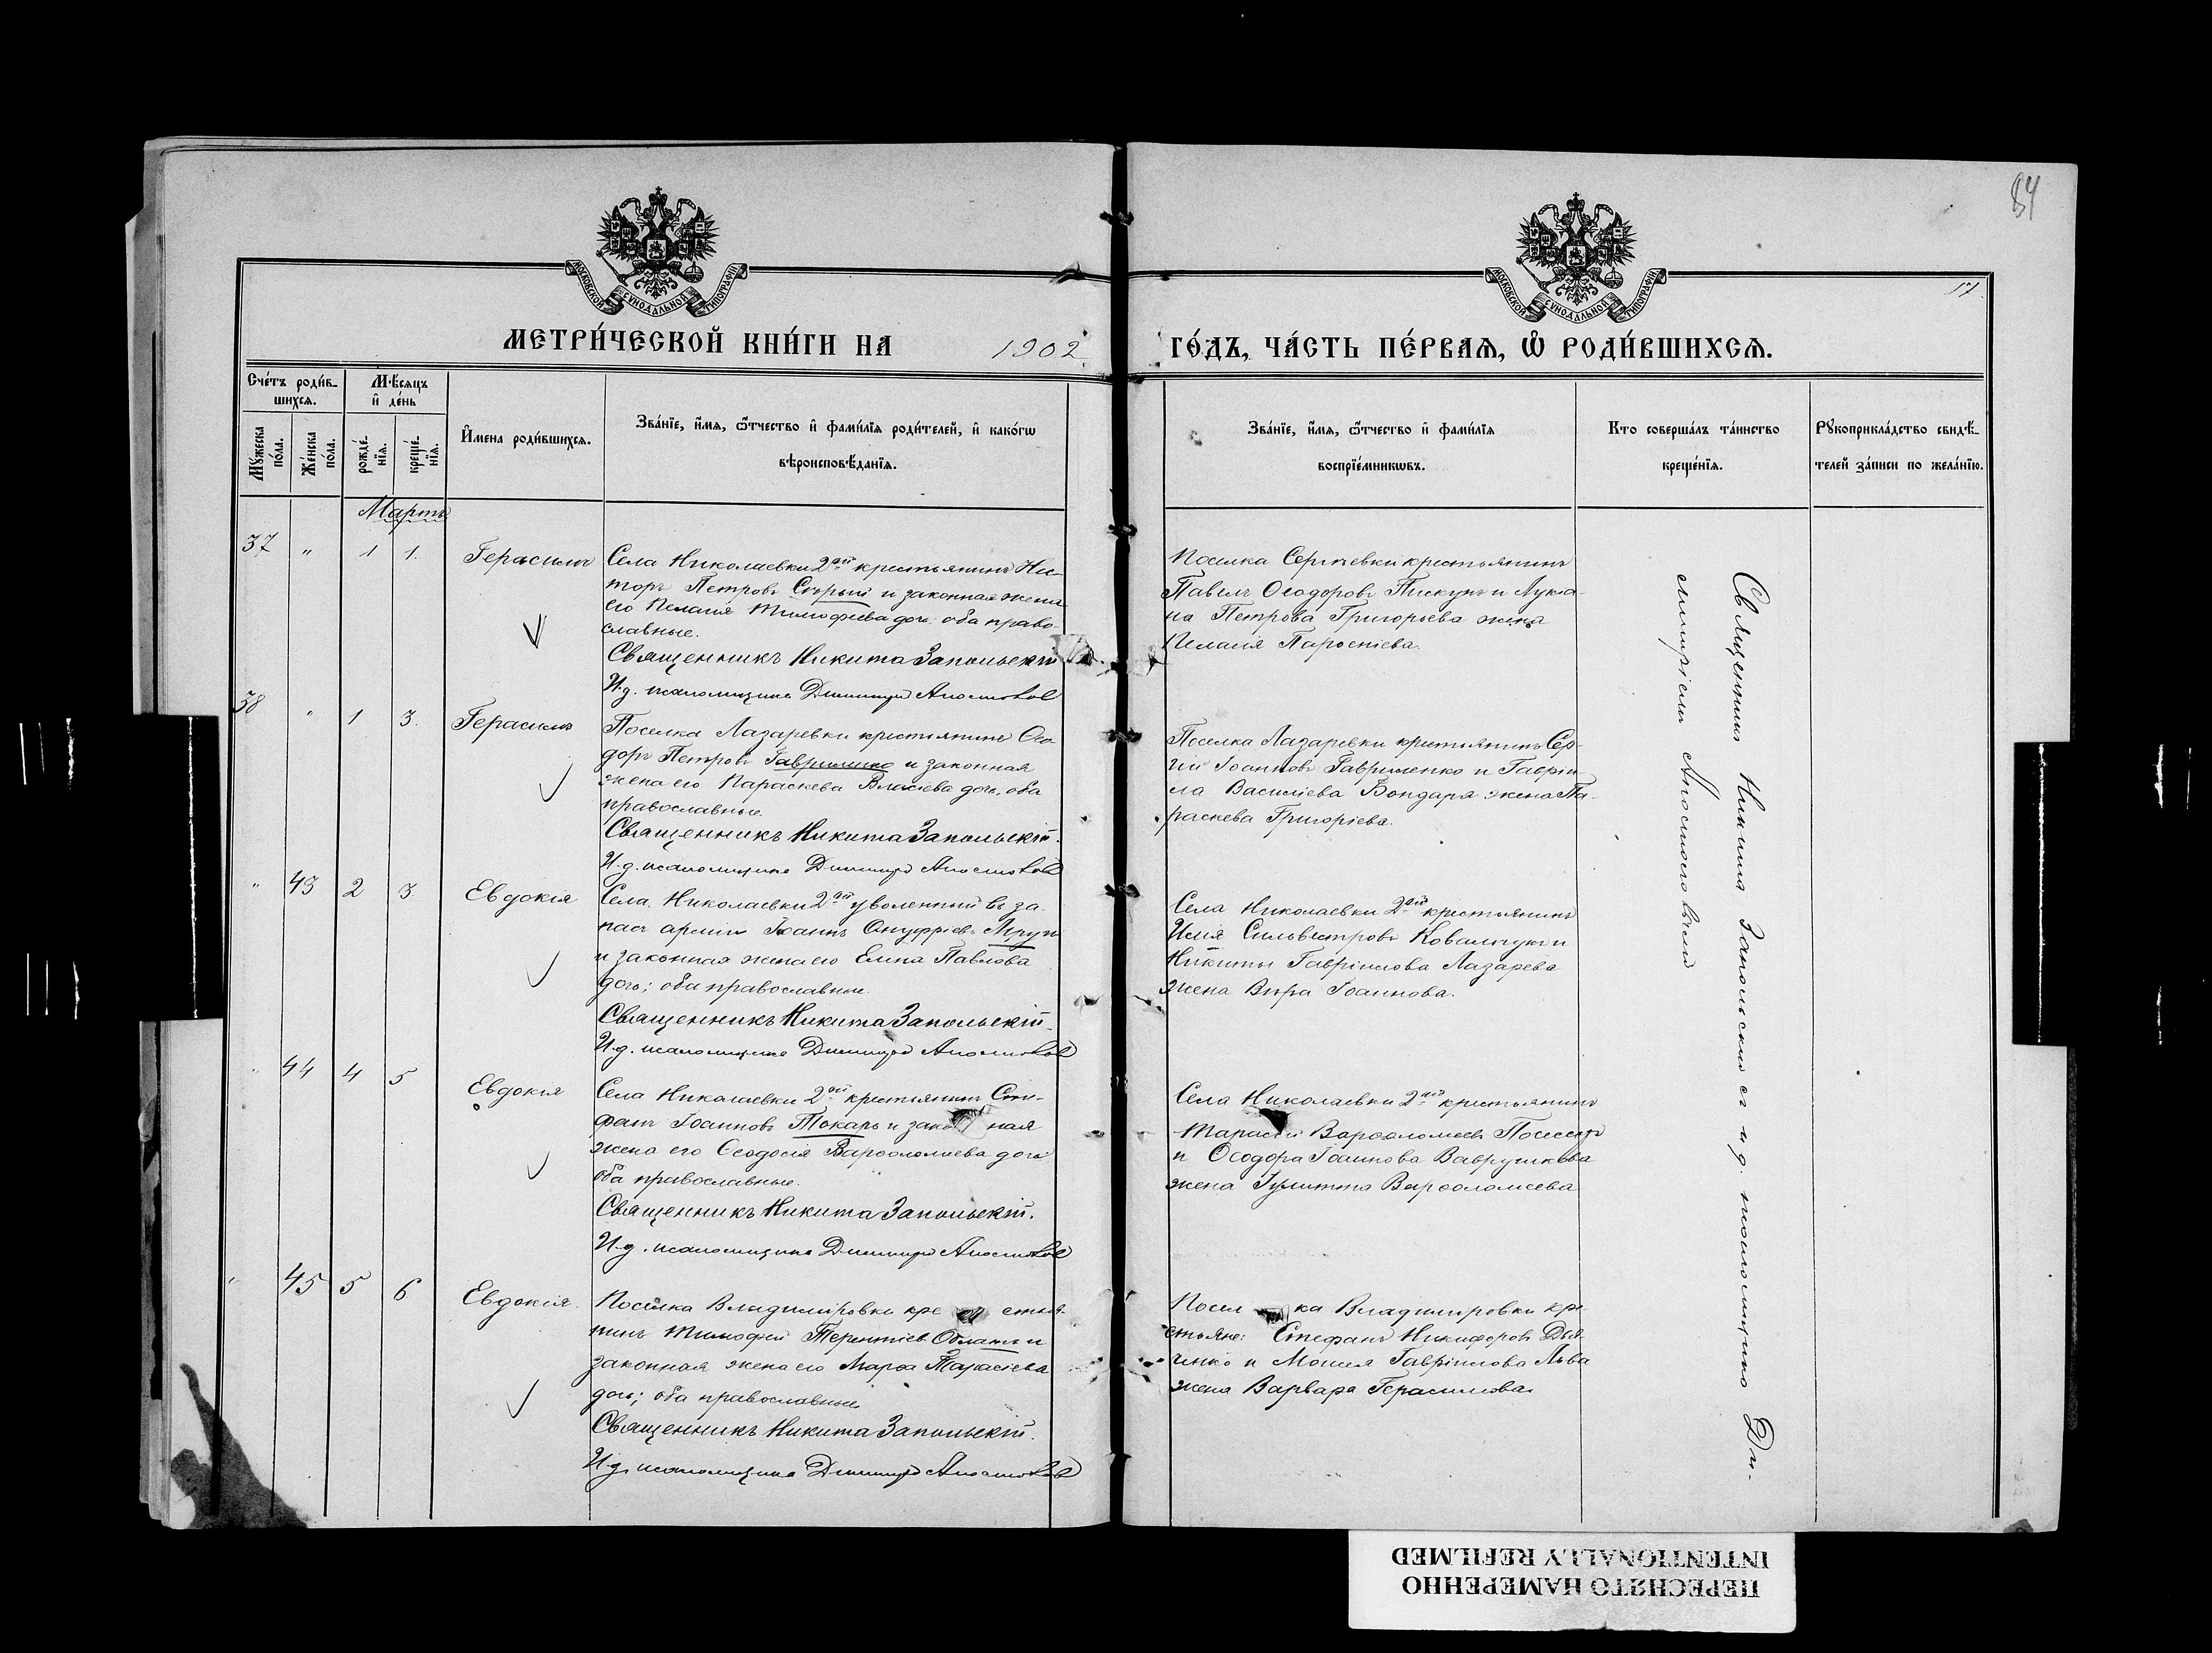 84
17
МОСКОВСКОЙ СѴНОДАЛЬНОЙ ТИПОГРАФІИ
МОСКОВСКОЙ СѴНОДАЛЬНОЙ ТИПОГРАФІИ
МЕТРИ́ЧЕСКОЙ КНИ́ГИ НА 1902 ГО́ДЪ, ЧА́СТЬ ПЕ́РВАѦ, Ѡ҆ РОДИ́ВШИХСѦ.
Сче́тъ роди́в-
шихсѧ.
Мꙋ́жеска по́ла.
Же́нска по́ла.
Мѣ́сѧцъ
и҆ де́нь
рожде́нїѧ.
креще́нїѧ.
И҆мена роди́вшихсѧ.
Зва́нїе, и҆́мѧ, ѻ҆́тчество и҆ фами́лїѧ роди́телей, и҆ како́гѡ
вѣроисповѣ́данїѧ.
Зва́нїе, и҆́мѧ, ѻ҆́тчество и҆ фами́лїѧ
воспрїе́мникѡвъ.
Кто соверша́лъ та́инство
креще́нїѧ.
Рꙋкоприкла́дство свидѣ́-
телей за́писи по жела́нїю.
Мартъ
37 " 1 1. Герасимъ
Села Николаевки 2ой крестьянинъ Ни-
торъ Петровъ Сѣрый и законная жена
его Пелагія Тимофеева дочь: оба право-
славные.
Священникъ Никита Запольскій
И.д. псаломщика Димитрій Апостолов
Поселка Сергѣевки крестьянинъ
Павелъ Ѳеодоровъ Пискунъ и Лукіа-
на Петрова Григорьева жена
Пелагія Парѳеніева.
38 " 1 3. Герасимъ
Поселка Лазаревки крестьянинъ Ѳео-
доръ Петровъ Гавриленко и законная
жена его Параскева Власіева дочь, оба
православные.
Священникъ Никита Запольскій.
И.д. псаломщика Димитрій Апостолов
Поселка Лазаревки крестьянинъ Сер-
гій Іоанновъ Гавриленко и Гавріи-
ла Василіева Бондаря жена Па-
раскева Григоріева.
" 43 2 3 Евдокія
Села Николаевки 2ой уволенный въ за-
пасъ арміи Іоаннъ Онуфріевъ
и законная жена его Елена Павлова
дочь; оба православные.
Священникъ Никита Запольскій.
И.д. псаломщика Димитрій Апостолов
Села Николаевки 2ой крестьянинъ
Илія Сильвестровъ Ковальчукъ и
Никиты Гавріилова Лазарева
жена Вѣра Іоаннова.
" 44 4 5 Евдокія
Села Николаевки 2ой крестьянинъ Сте-
фанъ Іоанновъ Токарь и закон ная
жена его Ѳеодосія Варѳоломеева дочь
оба православные.
Священникъ Никита Запольскій.
И.д. псаломщика Димитрій Апостолов
Села Николаевки 2ой крестьянинъ
Тарасій Варѳоломеевъ
и Ѳеодора Іоаннова Ваврушкова
жена Іулитта Варѳоломеева
" 45 5 6 Евдокія.
Поселка Владиміровки кре стья-
нинъ Тимофей Терентіевъ и
законная жена его Марѳа Тарасіева
дочь; оба православные
Священникъ Никита Запольскій.
И.д. псаломщика Димитрій Апостолов
Посел ка Владиміровки кре-
стьяне: Стефанъ Никифоровъ Дья-
ченко и Моисея Гавріилова Льва
жена Варвара Герасимова.
Священникъ Никита Запольскій съ и.д. псаломщика Ди-
митріемъ Апостоловымъ
ПЕРЕСНЯТО НАМЕРЕННО
INTENTIONALLY REFILMED